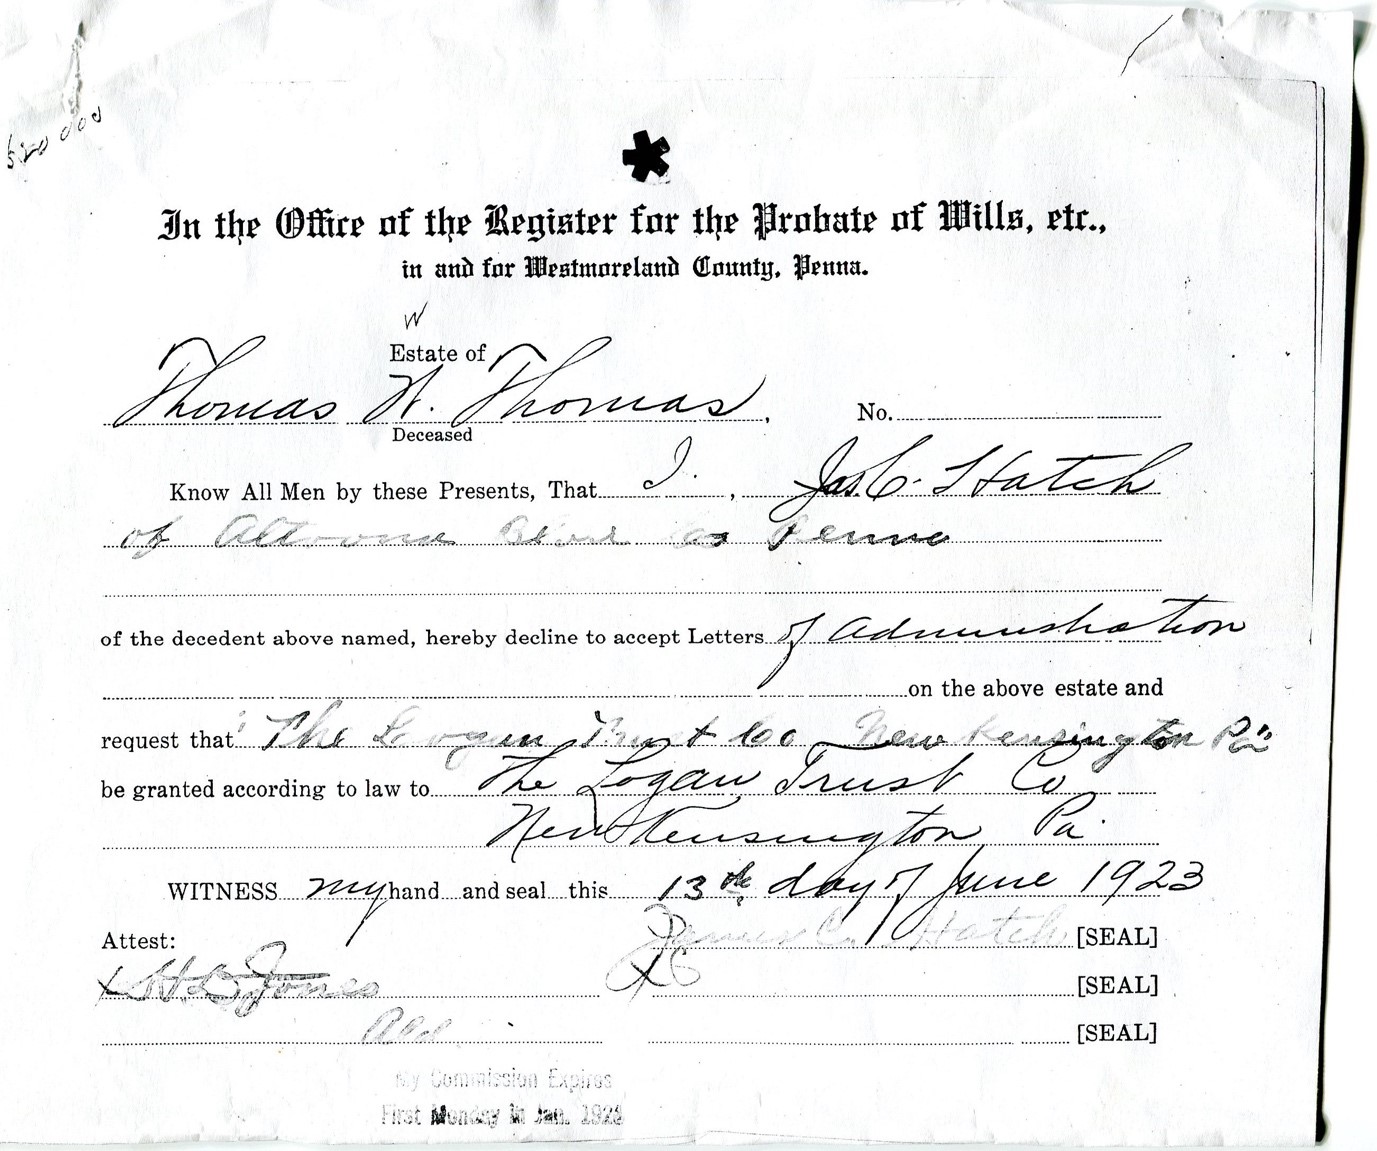 $20 000
In the Office of the Register for the Probate of Wills, etc.,
in and for Westmoreland County, Penna.
W
Estate of
Thomas W. Thomas,
No.
Deceased
Know All Men by these Presents, That I, Jas. C. Hatch
of Altoona Blair Co Penna
of the decedent above named, hereby decline to accept Letters of Administration
on the above estate and
request that The Logan Trust Co New Kensington Pa
be granted according to law to The Logan Trust Co
New Kensington Pa
WITNESS my hand and seal this 13th day of June 1923
Attest: James C. Hatch [SEAL]
x H. B. Jones x [SEAL]
Ald [SEAL]
My Commission Expires
First Monday in Jan.